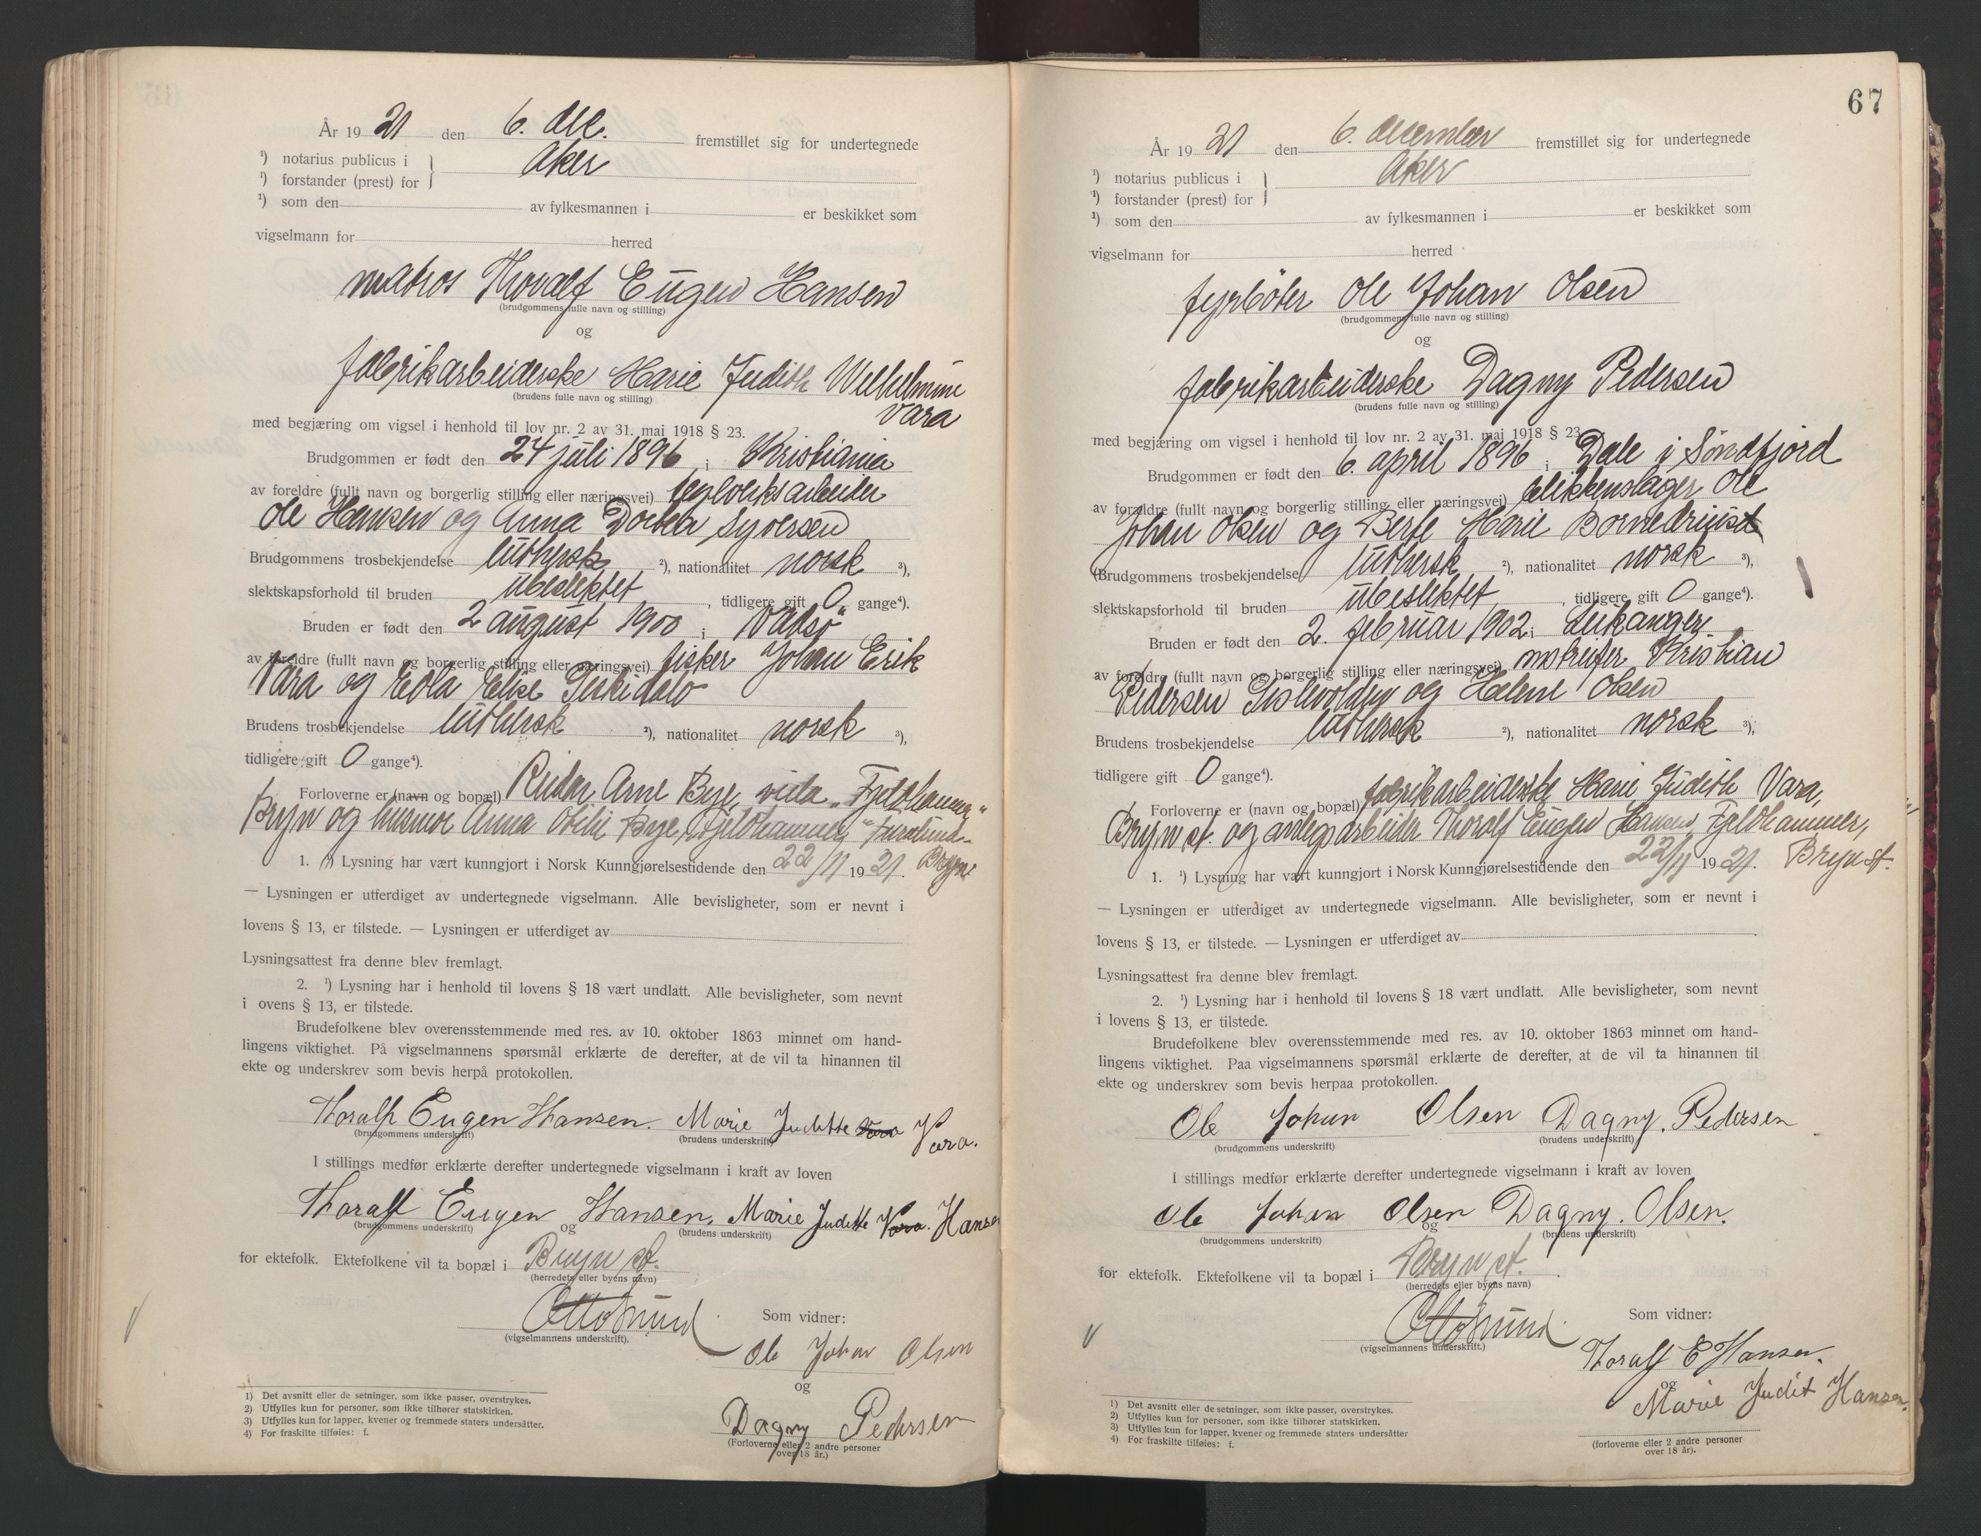 År 1921 den 6. dec. fremstillet sig for undertegnede
¹) notarius publicus i } Aker
¹) forstander (prest) for
¹) som den av fylkesmannen i er beskikket som
vigselmann for herred
matros Thoralf Eugen Hansen
(brudgommens fulle navn og stilling)
og
fabrikarbeiderske Marie Judith Wilhelmine
Vara
(brudens fulle navn og stilling)
med begjæring om vigsel i henhold til lov nr. 2 av 31. mai 1918 § 23.
Brudgommen er født den 24 juli 1896 i Kristiania
av foreldre (fullt navn og borgerlig stilling eller næringsvei) teglverksarbeider
Ole Hansen og Anna Dorthea Syversen
Brudgommens trosbekjendelse luthersk ²), nationalitet norsk ³),
slektskapsforhold til bruden ubeslektet, tidligere gift 0 gange⁴).
Bruden er født den 2 august 1900 i Vadsø
av foreldre (fullt navn og borgerlig stilling eller næringsvei) fisker Johan Erik
Vara og Eola Elise
Brudens trosbekjendelse luthersk ²), nationalitet norsk ³),
tidligere gift 0 gange⁴).
Forloverne er (navn og bopæl) Reidar Arne Bye, "Fjeldhammer"
Bryn og husmor Anna Otilie Bye, Fjeldhammer, "Furulund"
Bryn
1. ¹) Lysning har vært kunngjort i Norsk Kunngjørelsestidende den 22/11 1921.
— Lysningen er utferdiget av undertegnede vigselmann. Alle bevisligheter, som er nevnt i
lovens § 13, er tilstede. — Lysningen er utferdiget av
Lysningsattest fra denne blev fremlagt.
2. ¹) Lysning har i henhold til lovens § 18 vært undlatt. Alle bevisligheter, som nevnt
i ovens § 13, er tilstede.
Brudefolkene blev overensstemmende med res. av 10. oktober 1863 minnet om hand-
lingens viktighet. På vigselmannens spørsmål erklærte de derefter, at de vil ta hinannen til
ekte og underskrev som bevis herpå protokollen.
Thoralf Eugen Hansen. Marie Juditte Vara Vara.
(brudgommens underskrift) (brudens underskrift)
I stillings medfør erklærte derefter undertegnede vigselmann i kraft av loven
Thoralf Eugen Hansen. Marie Juditte Vara. Hansen
(brudgommens underskrift) og (brudens underskrift)
for ektefolk. Ektefolkene vil ta bopæl i Bryn st.
(herredets eller byens navn)
Otto Lund
(vigselmannens underskrift).
Som vidner:
Ole Johan Olsen
og
Dagny Pedersen
(Forloverne eller 2 andre personer
over 18 år.)
1) Det avsnitt eller de setninger, som ikke passer, overstrykes.
2) Utfylles kun for personer, som ikke tilhører statskirken.
3) Utfylles kun for lapper, kvener og fremmede staters undersåtter.
4) For fraskilte tilføies: f.
67
År 1921 den 6. december fremstillet sig for undertegnede
¹) notarius publicus i } Aker
¹) forstander (prest) for
¹) som den av fylkesmannen i er beskikket som
vigselmann for herred
fyrbøter Ole Johan Olsen
(brudgommens fulle navn og stilling)
og
fabrikarbeiderske Dagny Pedersen
(brudens fulle navn og stilling)
med begjæring om vigsel i henhold til lov nr. 2 av 31. mai 1918 § 23.
Brudgommen er født den 6. april 1896 i Dale i Søndfjord
av foreldre (fullt navn og borgerlig stilling eller næringsvei) blikkenslager Ole
Johan Olsen og Berte Marie
(Brudgommens trosbekjendelse luthersk ²), nationalitet norsk ³),
slektskapsforhold til bruden ubeslektet, tidligere gift 0 gange⁴).
Bruden er født den 2. februar 1902 i Leikanger
av foreldre (fullt navn og borgerlig stilling eller næringsvei) Kristian
Pedersen og Helene Olsen
Brudens trosbekjendelse luthersk ²), nationalitet norsk ³),
tidligere gift 0 gange⁴).
Forloverne er (navn og bopæl) fabrikarbeiderske Marie Judith Vara,
Bryn st. og anlegsarbeider Thoralf Eugen Hansen, Fjeldhammer,
Bryn st.
1. ¹) Lysning har vært kunngjort i Norsk Kunngjørelsestidende den 22/11 1921.
— Lysningen er utferdiget av undertegnede vigselmann. Alle bevisligheter, som er nevnt i
lovens § 13, er tilstede. — Lysningen er utferdiget av
Lysningsattest fra denne blev fremlagt.
2. ¹) Lysning har i henhold til lovens § 18 vært undlatt. Alle bevisligheter, som nevnt
i lovens § 13, er tilstede.
Brudefolkene blev overensstemmende med res. av 10. oktober 1863 minnet om hand-
lingens viktighet. Paa vigselmannens spørsmål erklærte de derefter, at de vil ta hinannen til
ekte og underskrev som bevis herpaa protokollen.
Ole Johan Olsen Dagny. Pedersen
(brudgommens underskrift) (brudens underskrift)
I stillings medfør erklærte derefter undertegnede vigselmann i kraft av loven
Ole Johan Olsen Dagny. Olsen.
(brudgommens underskrift) og (brudens underskrift)
for ektefolk. Ektefolkene vil ta bopæl i Bryn st.
(herredets eller byens navn)
Otto Lund
(vigselmannens underskrift.)
Som vidner:
Thoralf E Hansen.
og
Marie Judit Hansen.
(forloverne eller 2 andre personer
over 18 år).
1) Det avsnitt eller de setninger, som ikke passer, overstrykes.
2) Utfylles kun for personer, som ikke tilhører statskirken.
3) Utfylles kun for lapper, kvener og fremmede staters undersåtter
4) For fraskilte tilføies: f.